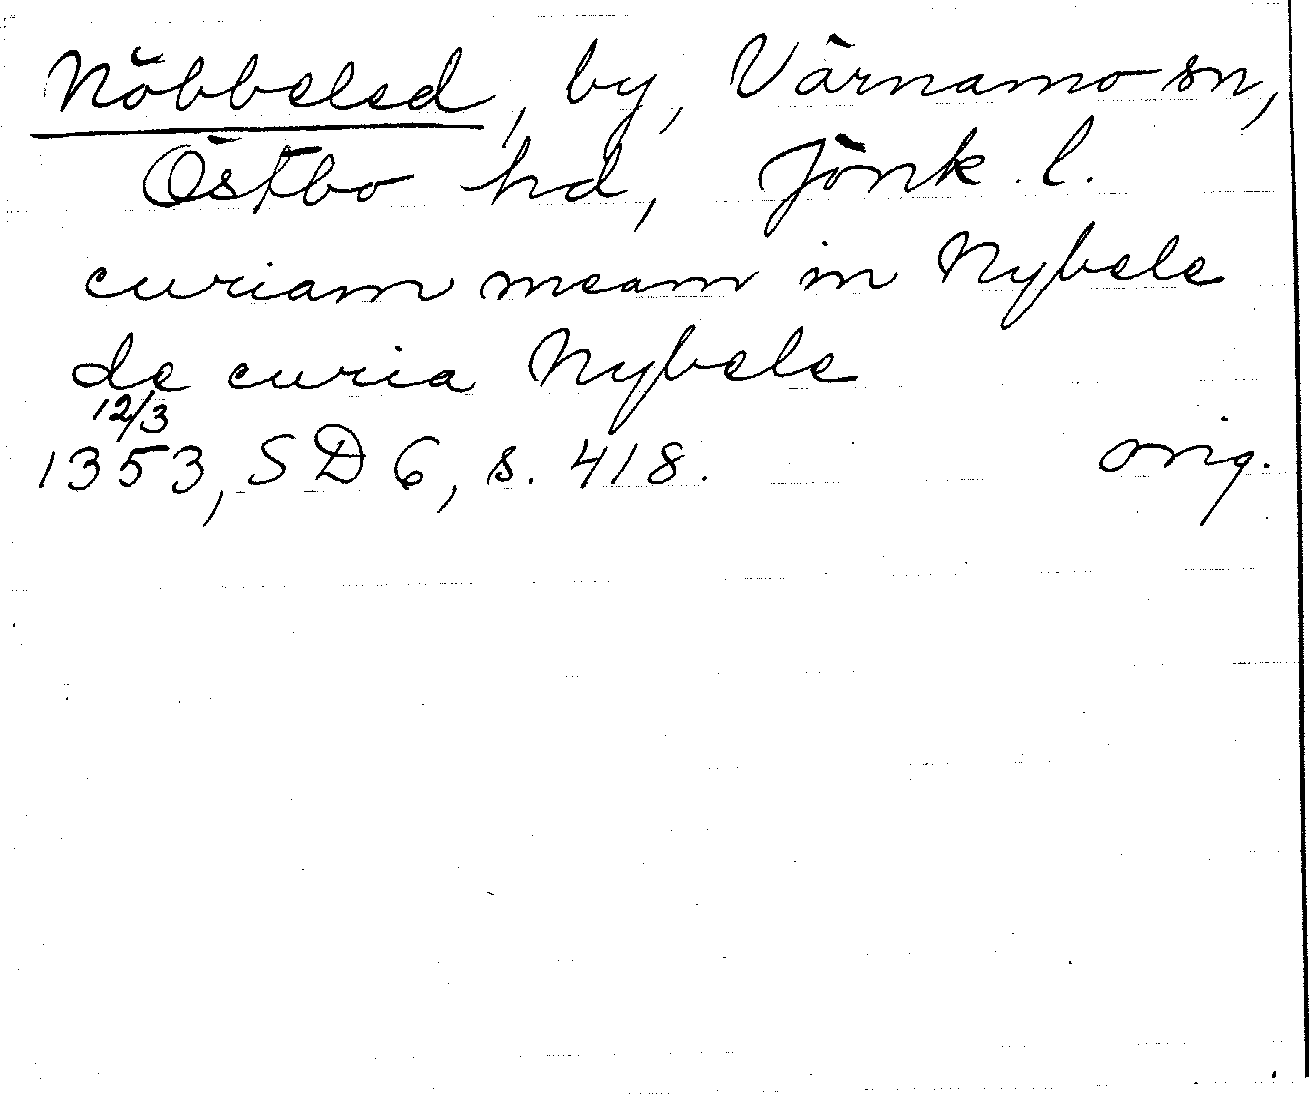 Nöbbeled, by, Värnamo sn,
Östbo hd, Jönk. l.
curiam meam in Nybele
de curia Nybele
12/3
1353, SD 6, s. 418. orig.